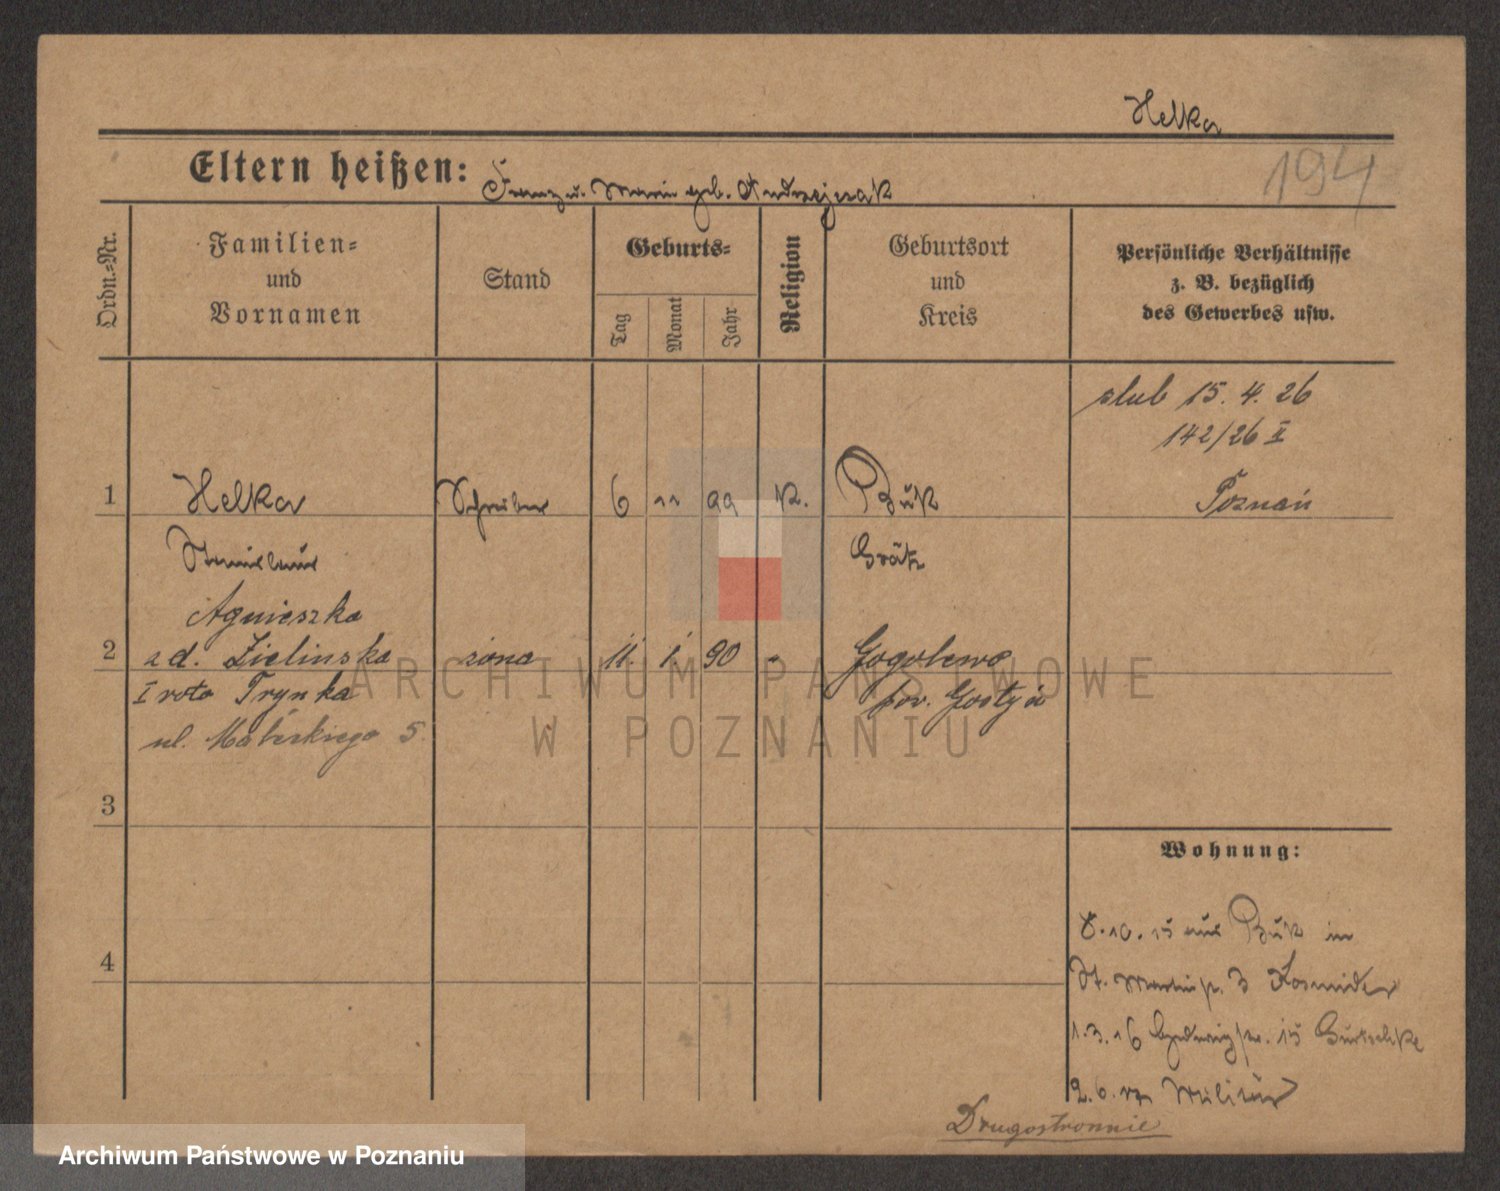 Helka
194
Eltern heißen: Franz u. Marie geb. Andrzejczak
Ordn.-Nr.
Familien-
und
Vornamen
Stand
Geburts-
Tag
Monat
Jahr
Religion
Geburtsort
und
Kreis
Persönliche Verhältnisse
z. B. bezüglich
des Gewerbes usw.
ślub 15. 4. 26
142/26 II
Poznań
1 Helka Schreiber 6 11 99 K. Buk
Stanislaus Grätz
Agnieszka
2 z d. Zielinska żona 11. 1. 90 " Gogolewo
I voto Trynka pow. Gostyń
ul. Małeckiego 5.
3
4
Wohnung:
8.10.15 aus Buk in
St. Martinstr. 3 Kosmider
1.3.16 15
2.6.17 Militär
Drugostronnie
ARCHIWUM PAŃSTWOWE
W POZNANIU
Archiwum Państwowe w Poznaniu